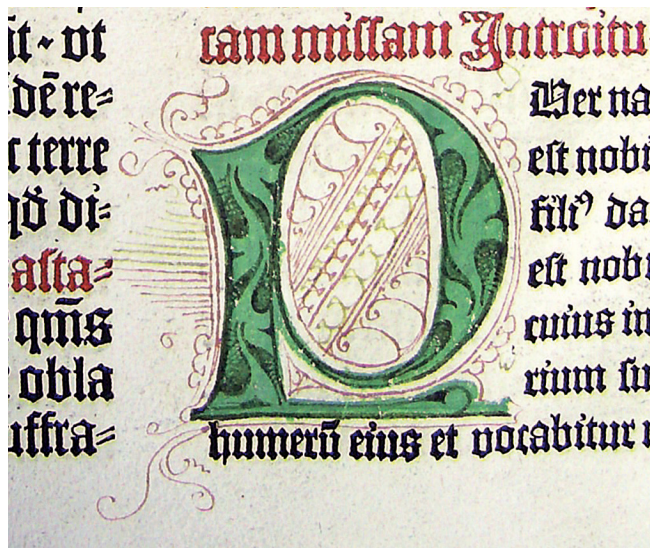 ñt · vt
dē re⸗
r terre
qđ di⸗
asta⸗
qm̄s
obla
uffra⸗
cam missam Introitu
P
Uer na
est nobi
filiꝰ da
est nobi
cuius im
rium su
humerū eius et vocabitur